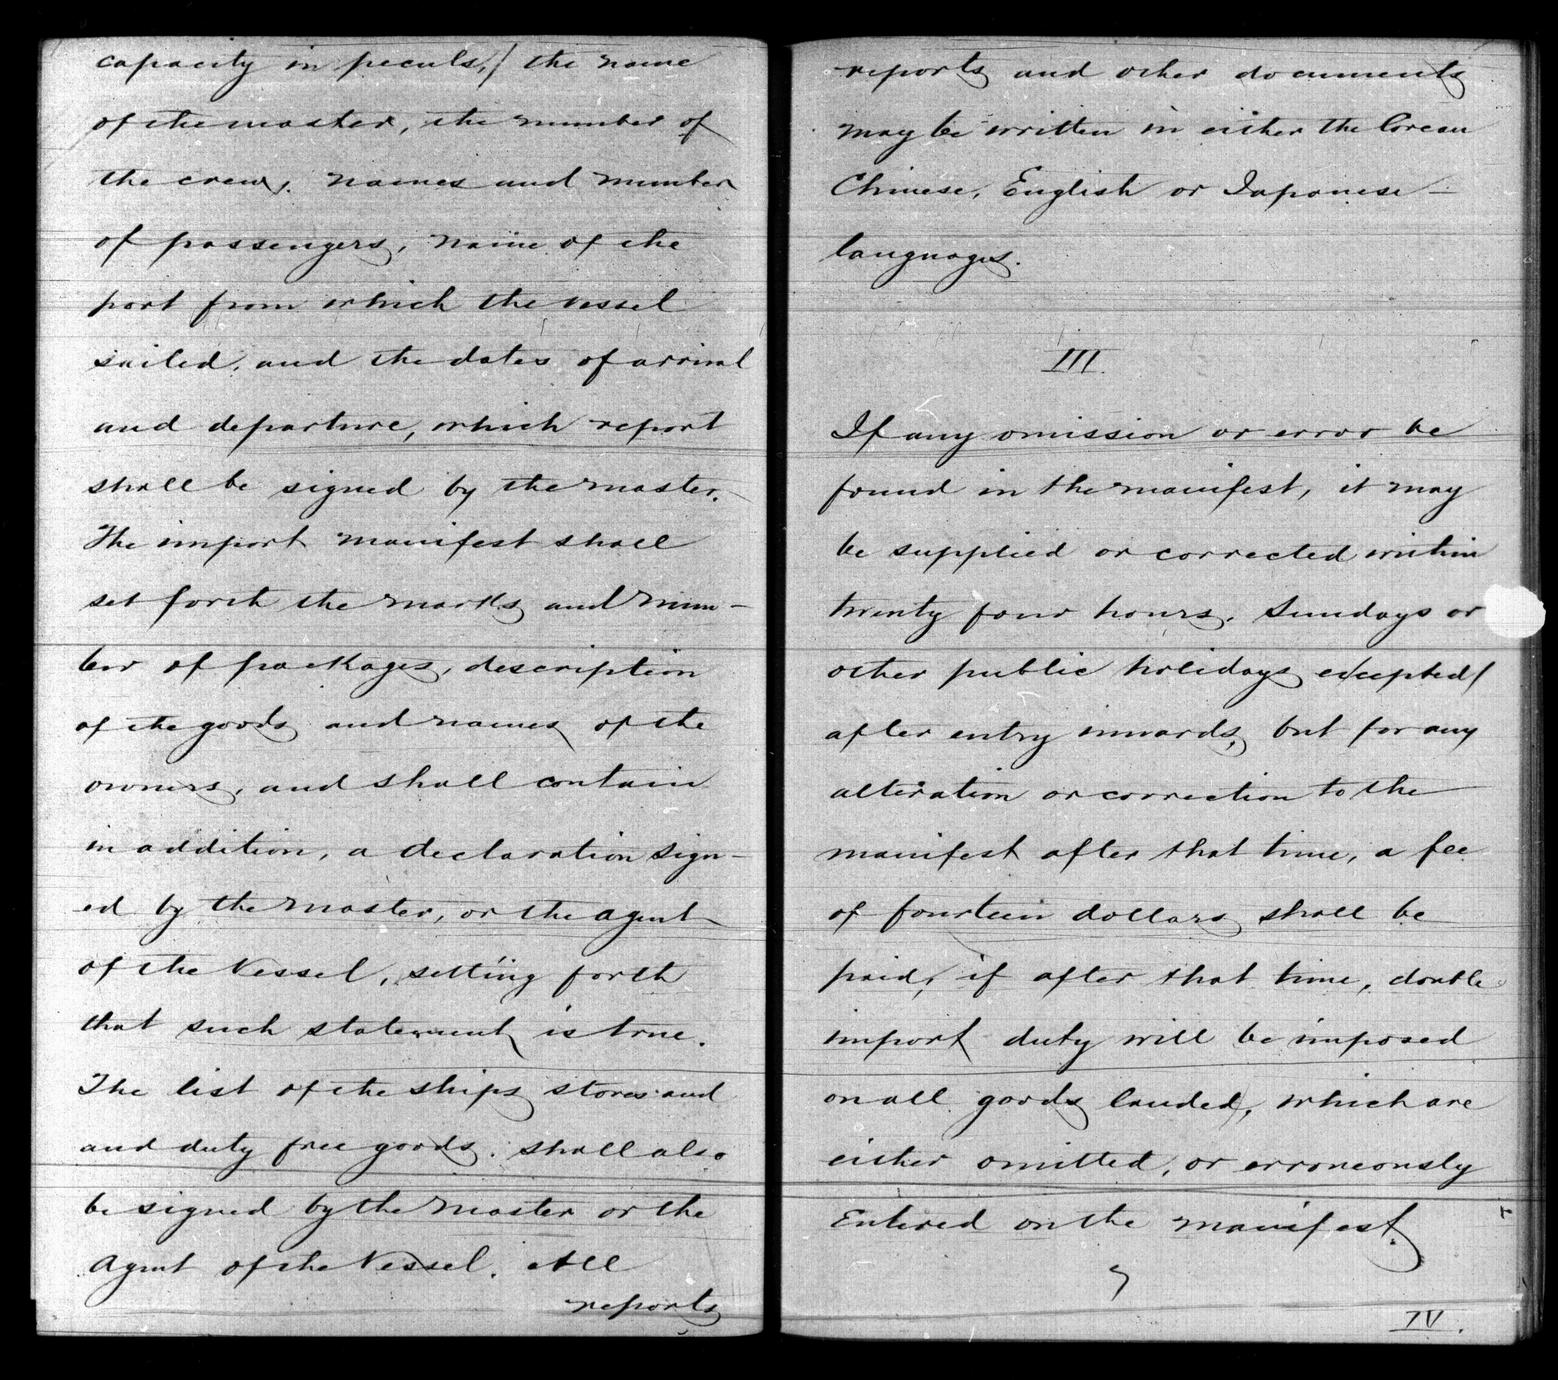 capacity in peculs,) the name
of the master, the number of
the crews. names and number
of passengers, name of the
port from which the vessel
sailed, and the dates of arrival
and departure, which report
shall be signed by the master.
The import manifest shall
set forth the marks and num-
ber of packages, description
of the goods and names of the
owners, and shall contain
in addition, a declaration sign-
ed by the master, or the agent
of the Vessel, setting forth
that such statement is true.
The list of the ships stores and
and duty free goods. shall also
be signed by the Master or the
Agent of the Vessel. All
reports
reports and other documents
may be written in either the Corean
Chinese, English or Japanese -
languages.
III.
If any omission or error be
found in the manifest, it may
be supplied or corrected within
twenty four hours. Sundays or
other public holidays excepted)
after entry inwards, but for any
alteration or correction to the
manifest after that time, a fee
of fourteen dollars shall be
paid, if after that time, double
import duty will be imposed
on all goods landed, which are
either omitted, or erroneously
Entered on the manifest.
IV.